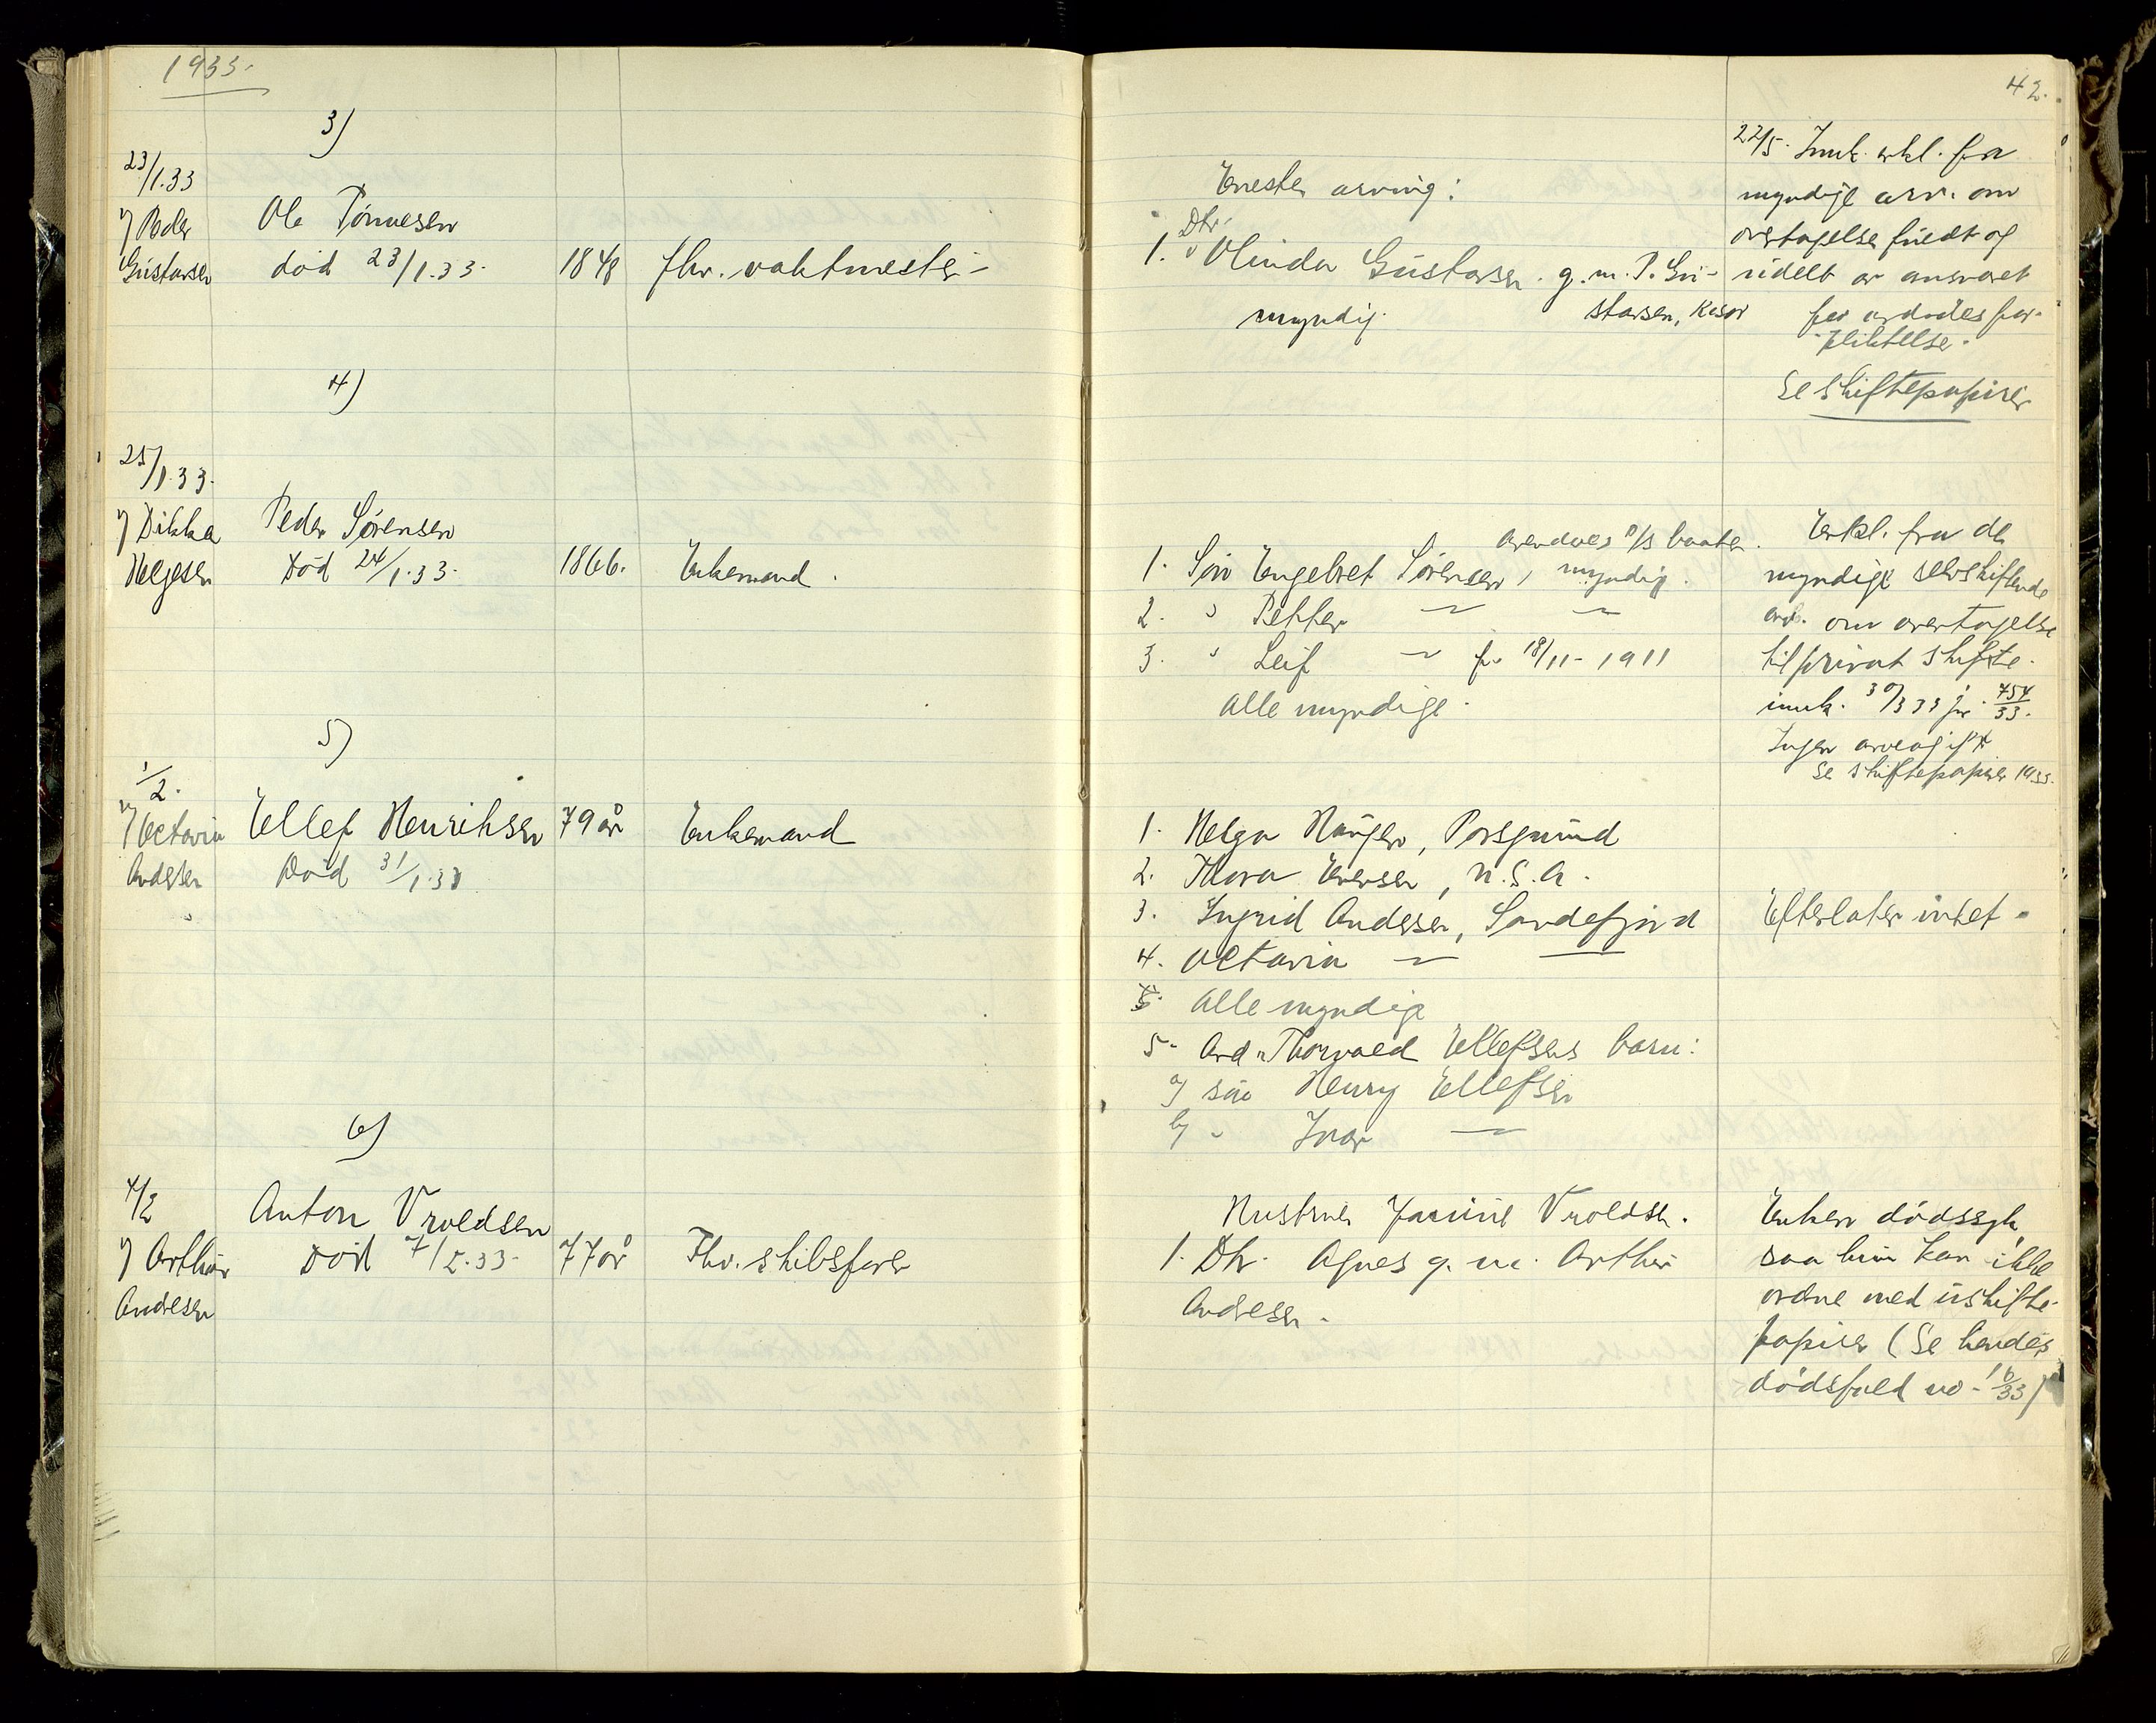 1933.
42.
3)
23/1.33
v/ Peder
Gustavsen
Ole Tønnesen
død 23/1.33.
1848
fhv. vaktmester
Eneste arving:
Dtr.
1. Olinda Gustavsen. g. m. P. Gu-
stavsen, Risør
myndig.
22/5. Innk. erkl. fra
myndige arv. om
overtagelse fuldt og
udelt av ansvaret
for avdødes for-
pliktelse.
Se skiftepapirer
4)
25/1.33.
v/ Dikka
Helgesen
Peder Sørensen
Død 24/1.33.
1866.
Enkemand.
Arendals D/S baater.
1. Søn Engebret Sørensen, myndig.
2. " Petter — —
3. " Leif — f. 18/11-1911
Alle myndige.
Erkl. fra de
myndige selvskiftende
arv. om overtagelse
til privat skifte.
innk. 30/3 33 jr. 754/33.
Ingen arveavgift
Se skiftepapirer 1933.
5)
1/2.
v/ Octavia
Andersen
Ellef Henriksen
Død 31/1.33
79 år
Enkemand
1. Helga Haugen, Porsgrund
2. Thora Evensen, U.S.A.
3. Ingrid Andersen, Sandefjord
4. Octavia — —
5. Alle myndige
5. Avd. Thorvald Ellefsens barn:
a/ søn Henry Ellefsen
b/ " Ivar —
Efterlater intet.
6)
4/2
v/ Arthur
Andresen
Anton Vroldsen
Død 4/2.33.
77 år
Fhv. skibsfører
Hustru Janine Vroldsen.
1. Dtr. Agnes g. m. Arthur
Andresen.
Enken dødssyk,
saa hun kan ikke
ordne med uskifte-
papirer (Se hendes
dødsfald no. 16/33)